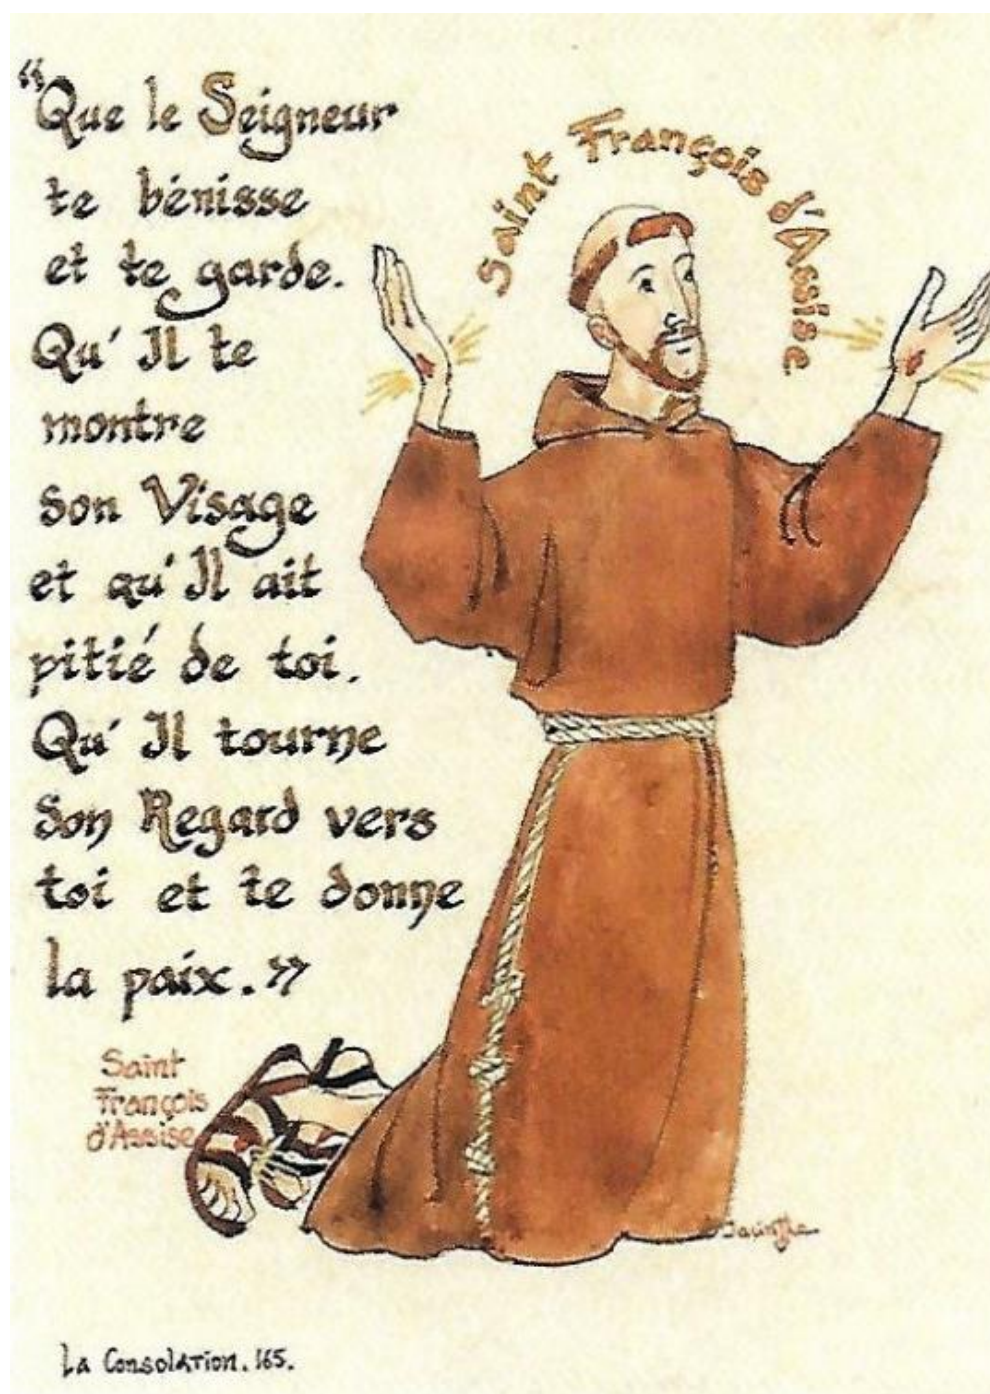 “Que le Seigneur
te bénisse
et te garde.
Qu' Il te
montre
son Visage
et qu'Il ait
pitié de toi.
Qu' Il tourne
Son Regard vers
toi et te donne
la paix.»
Saint
François
d'Assise
Saint François d'Assise
Jacinthe
La Consolation. 165.